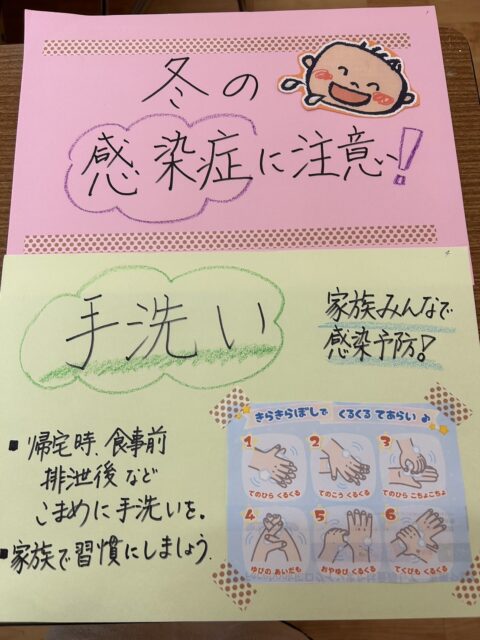 冬の
感染症に注意!
手洗い
家族みんなで
感染予防!
■ 帰宅時、食事前
排泄後など
こまめに手洗いを。
■ 家族で習慣にしましょう。
きらきらぼしで くるくる てあらい ♪
1 2 3
てのひら くるくる てのこう くるくる てのひら こちょこちょ
4 5 6
ゆびの あいだも おやゆび くるくる てくびも くるくる